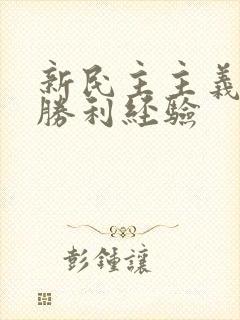 新民主主義
勝利経驗
彭鍾讓